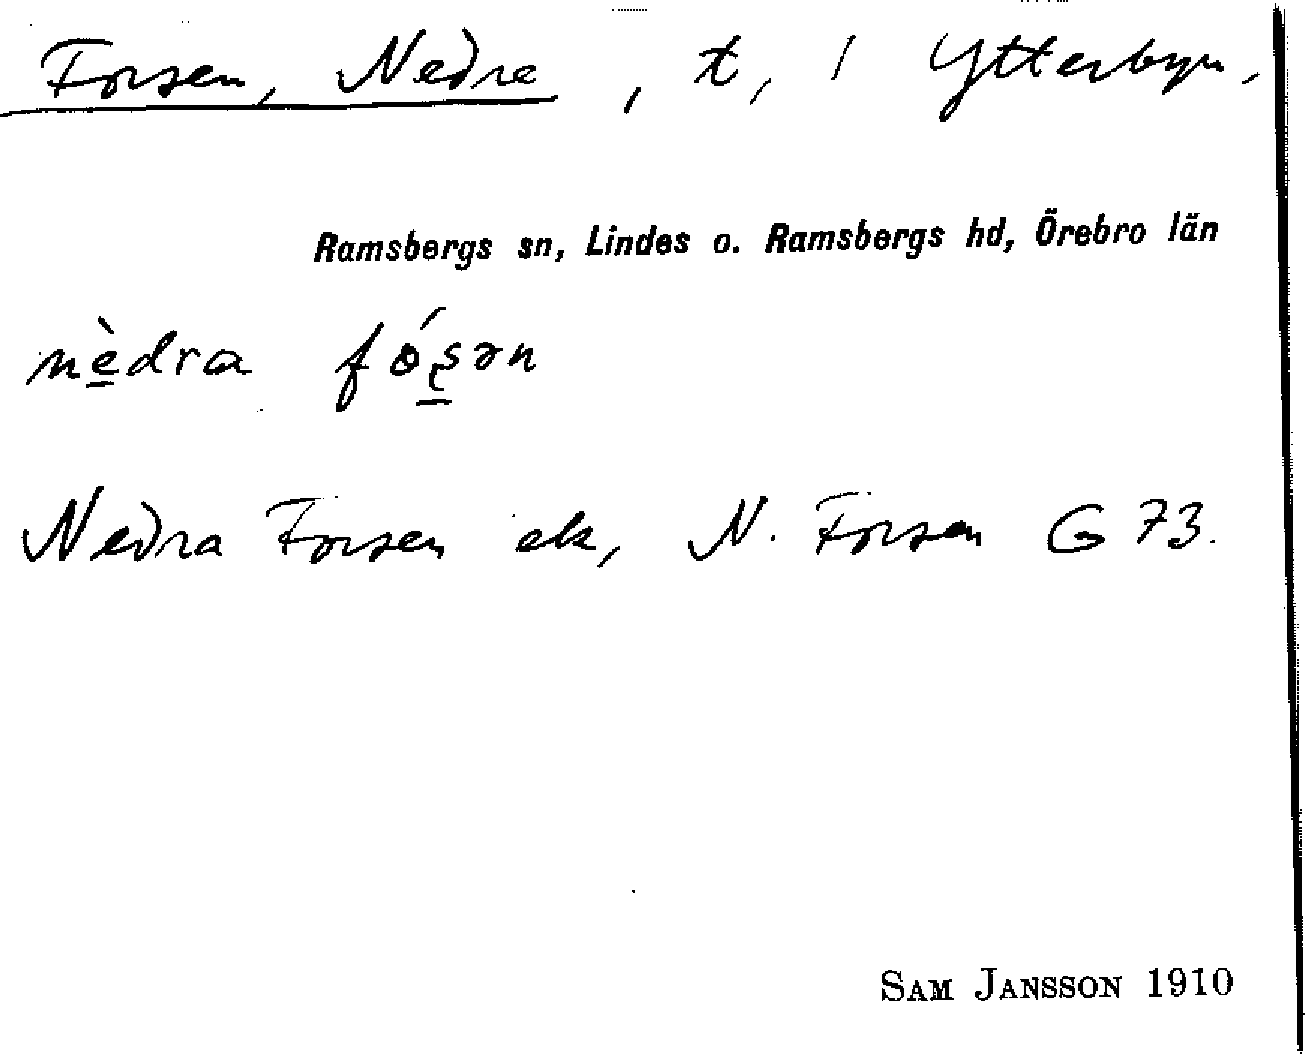 Forsen, Nedre, t, i Ytterbyn.
Ramsbergs sn, Lindes o. Ramsbergs hd, Örebro län
nèdra fóʂən
Nedra Forsen ek, N. Forsen G 73.
SAM JANSSON 1910